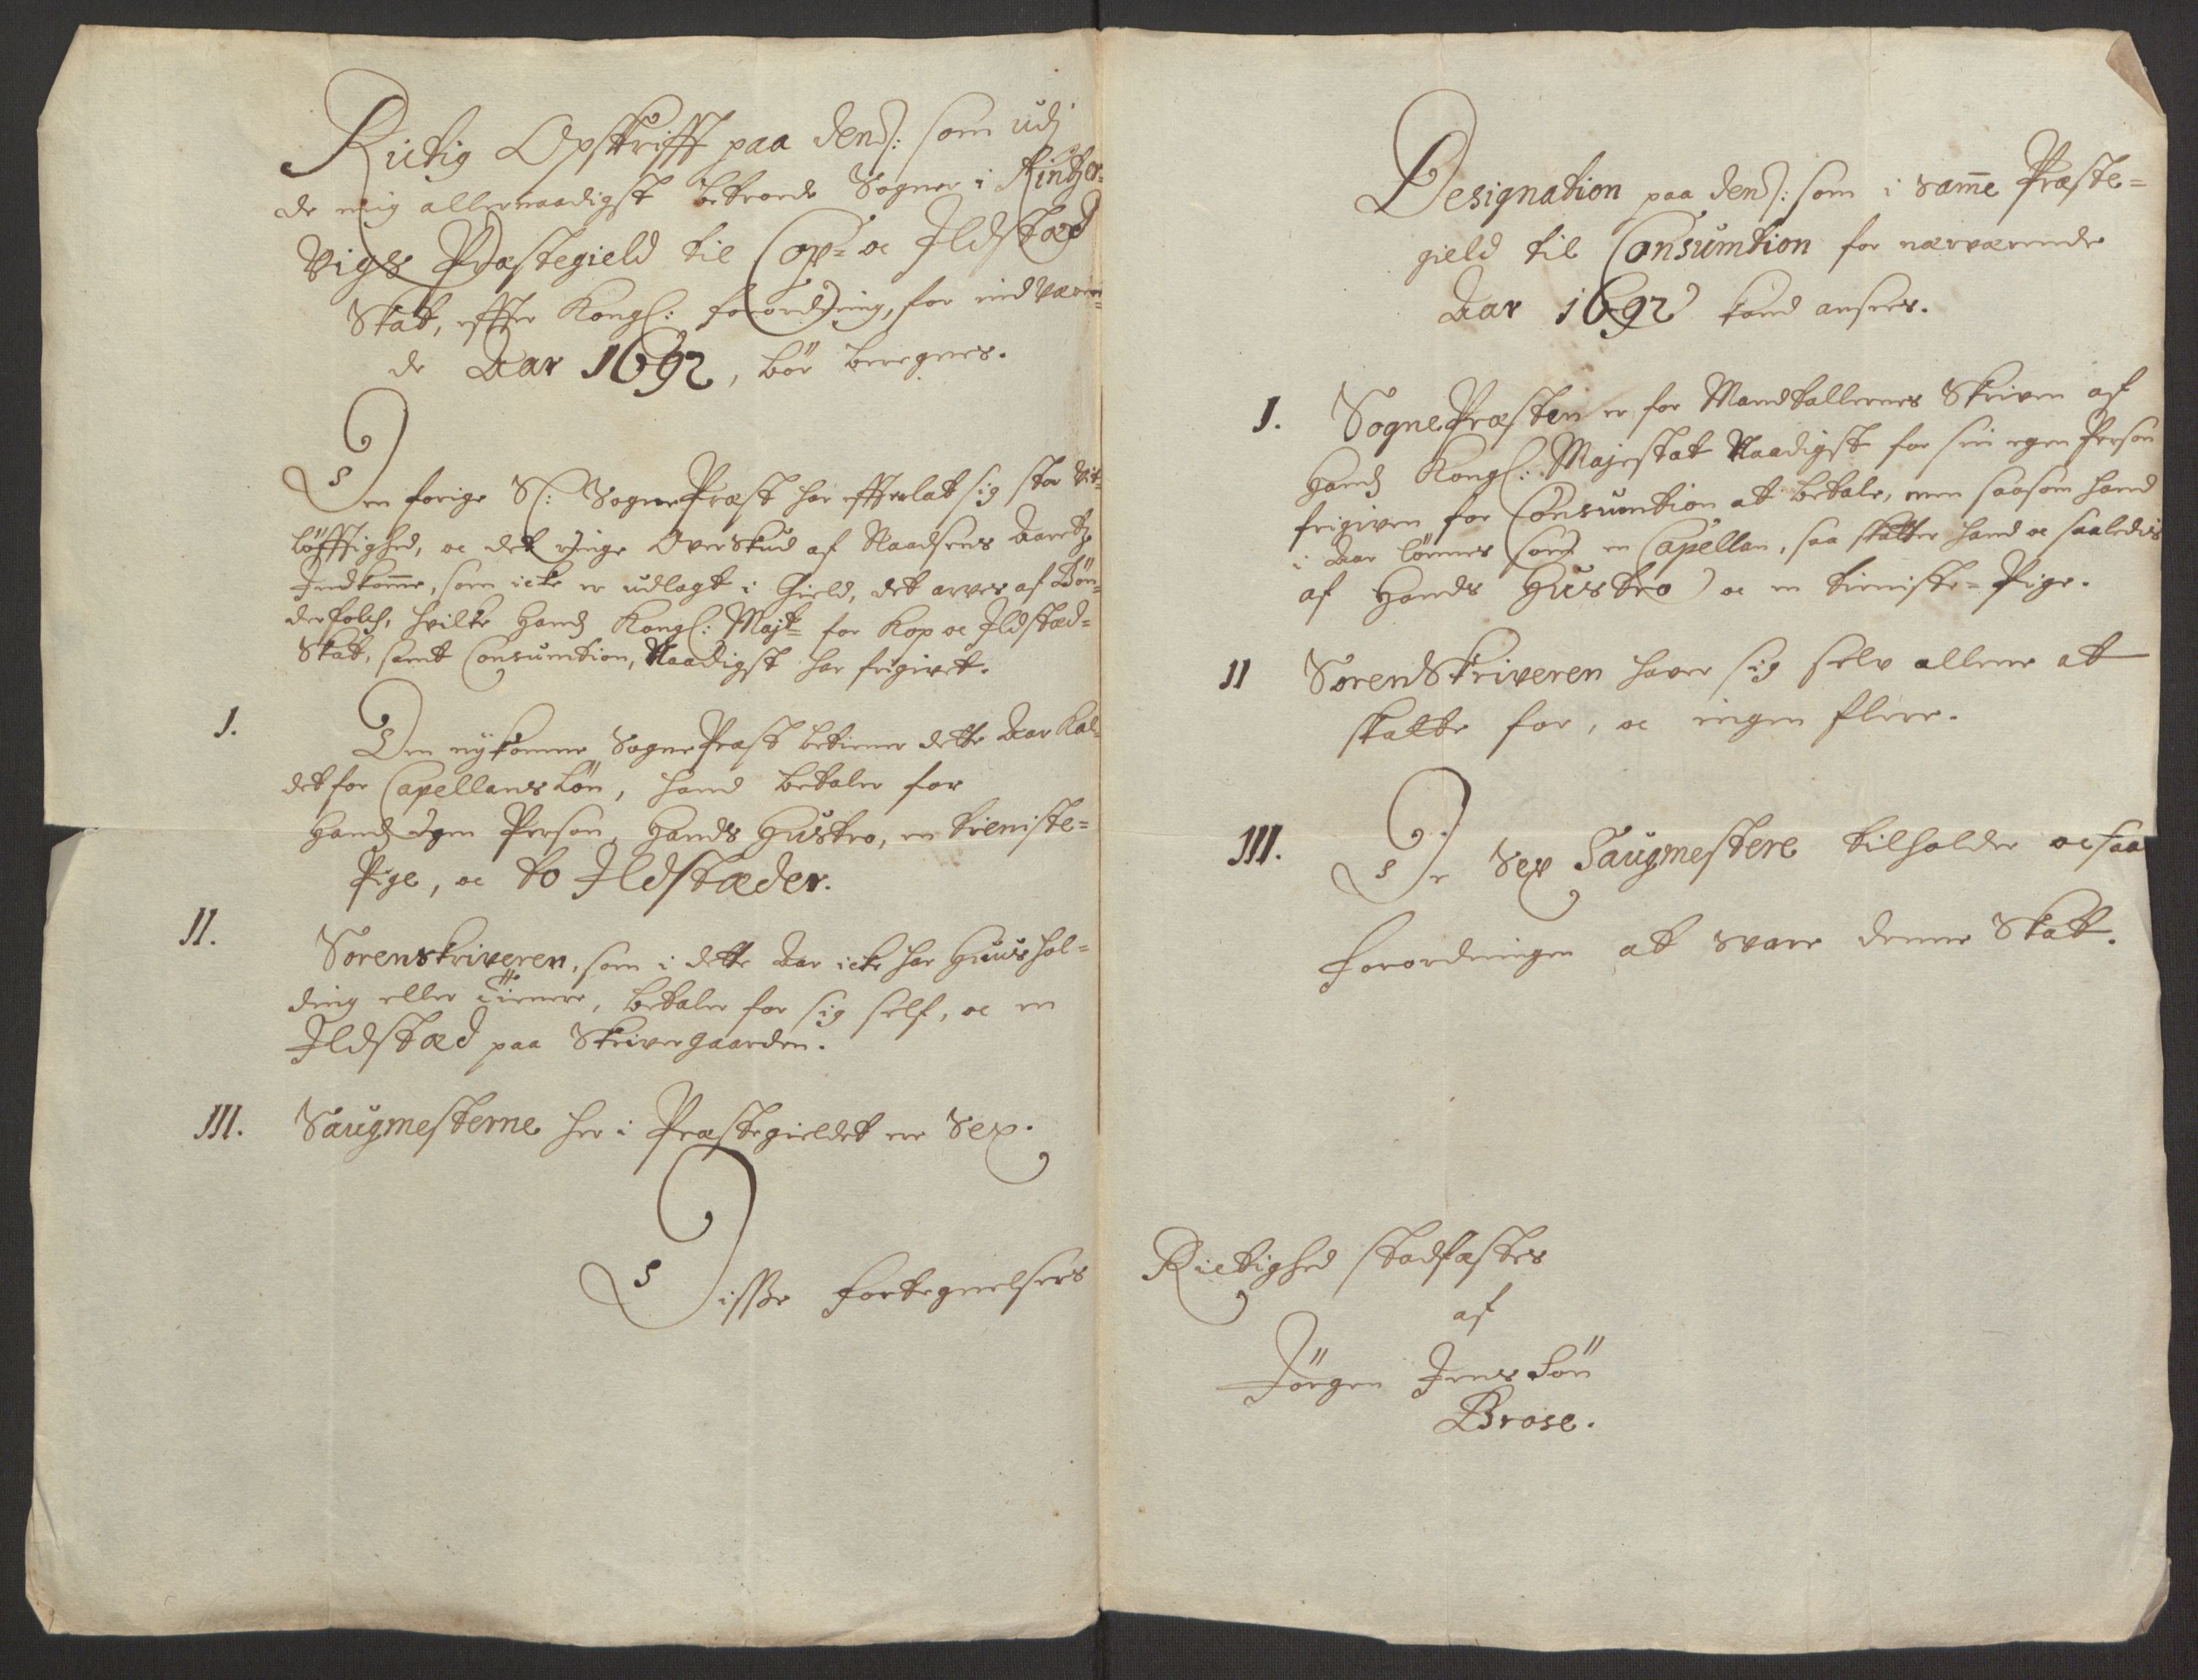 Rictig Opskrifft paa dend: som udj
de mig allernaadigst betroede Sogner i Kinser-
vigs Præstegield til Cop- oc Ildstæd
Skat, effter Kongl: forordning, for indværen-
de Aar 1692, bör beregnes.
Den forige Sl: SognePræst har effterlat sig stor Vit-
löfftighed, oc det ringe Overskud af Naadsens Aaretz
Indkom̄e, som icke er udlagt i Gield, det arves af Bön-
derfolch, hvilke Hands Kongl: Majt- for Kop oc Ildstæd-
Skat, samt Consumtion, Naadigst har frigivet.
I. Den nykomne SognePræst betiener dette Aar Kal-
det for Capellans Lön, hand betaler for
Hands Egen Person, Hands Hustro, en tieniste-
Pige, oc to Ildstæder.
II. Sorenskriveren, som i dette Aar icke har Huushol-
ding eller Tienere, betaler for sig self, oc en
Ildstæd paa Skrivergaarden.
III. Saugmesterne her i Præstegieldet ere Sex.
Disse fortegnelsers
Designation paa dend: som i sam̄e Præste-
gield til Consumtion for nærværende
Aar 1692 kand ansees.
I. SognePræsten er for Mandtallernes Skriven af
Hands Kongl: Majestæt Naadigst for sin egen Person
frigiven for Consumtion at betale, men saasom hand
i Aar lönnes som en Capellan, saa skatter hand oc saaledis
af Hands Hustro oc en tieniste-Pige.
II Sorenskriveren haver sig selv allene at
skatte for, oc ingen flere.
III. De Sex Saugmestere tilholder ocsaa
forordningen at svare denne Skatt.
Rictighed stadfæstes
af
Jörgen Jens Sön
Brose.